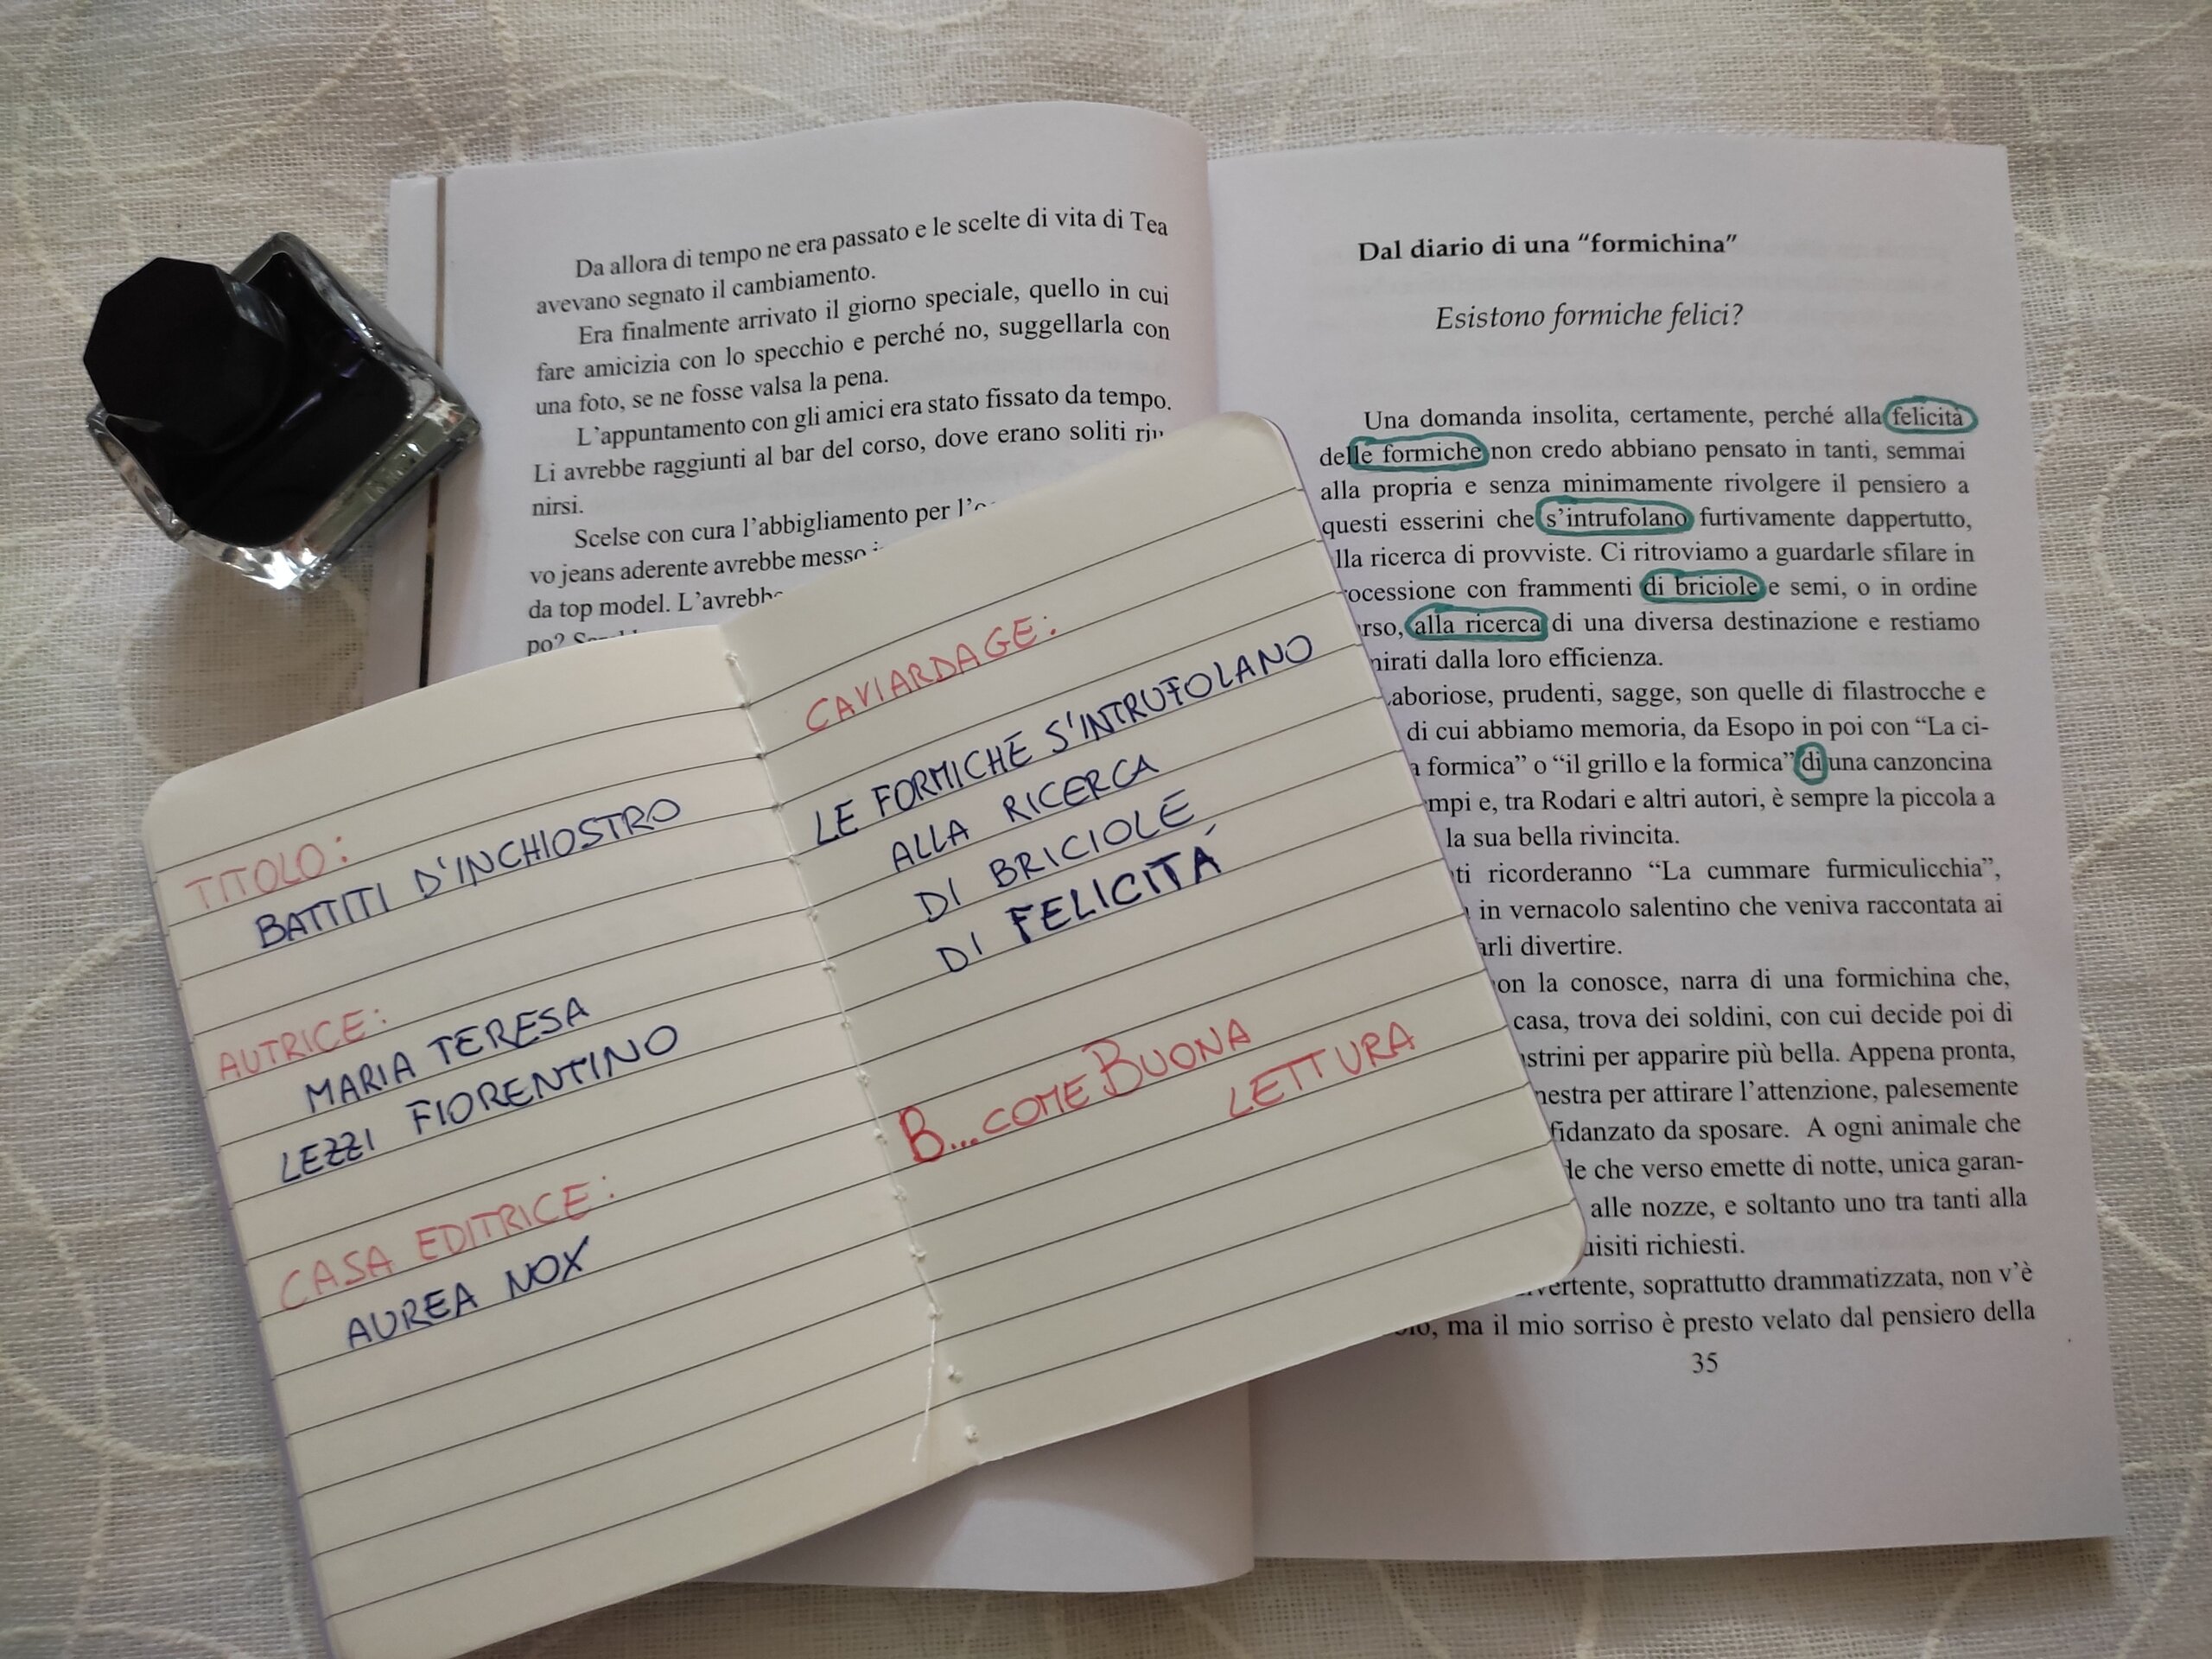 Da allora di tempo ne era passato e le scelte di vita di Tea
avevano segnato il cambiamento.
Era finalmente arrivato il giorno speciale, quello in cui
fare amicizia con lo specchio e perché no, suggellarla con
una foto, se ne fosse valsa la pena.
L'appuntamento con gli amici era stato fissato da tempo.
Li avrebbe raggiunti al bar del corso, dove erano soliti riu
nirsi.
Scelse con cura l'abbigliamento per
vo jeans aderente avrebbe messo
da top model. L'avrebbe
po?
Dal diario di una “formichina”
Esistono formiche felici?
Una domanda insolita, certamente, perché alla felicità
delle formiche non credo abbiano pensato in tanti, semmai
alla propria e senza minimamente rivolgere il pensiero a
questi esserini che s'intrufolano furtivamente dappertutto,
lla ricerca di provviste. Ci ritroviamo a guardarle sfilare in
ocessione con frammenti di briciole e semi, o in ordine
rso, alla ricerca di una diversa destinazione e restiamo
mirati dalla loro efficienza.
aboriose, prudenti, sagge, son quelle di filastrocche e
di cui abbiamo memoria, da Esopo in poi con “La ci-
a formica” o “il grillo e la formica” di una canzoncina
mpi e, tra Rodari e altri autori, è sempre la piccola a
la sua bella rivincita.
ti ricorderanno “La cummare furmiculicchia”,
in vernacolo salentino che veniva raccontata ai
arli divertire.
on la conosce, narra di una formichina che,
casa, trova dei soldini, con cui decide poi di
strini per apparire più bella. Appena pronta,
nestra per attirare l'attenzione, palesemente
fidanzato da sposare. A ogni animale che
de che verso emette di notte, unica garan-
alle nozze, e soltanto uno tra tanti alla
uisiti richiesti.
vertente, soprattutto drammatizzata, non v'è
olo, ma il mio sorriso è presto velato dal pensiero della
35
TITOLO:
BATTITI D'INCHIOSTRO
AUTRICE:
MARIA TERESA
LEZZI FIORENTINO
CASA EDITRICE:
AUREA NOX
CAVIARDAGE:
LE FORMICHE S'INTRUFOLANO
ALLA RICERCA
DI BRICIOLE
DI FELICITÁ
B...COME BUONA
LETTURA